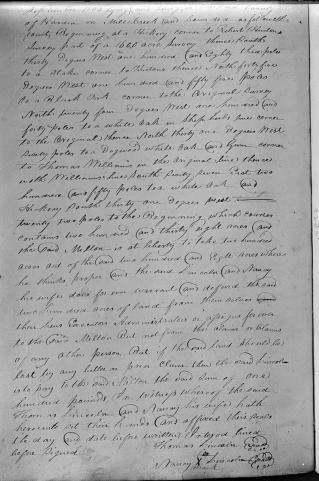 of Hardin on Mill Creek and bounded as followeth
Begining at a Hickory corner to Robert Hustons
Survey part of a 1600 acre Survey thence South
thirty Degrees West one hundred and Eighty three poles
to a Stake corner to Hustons thence North forty five
Degrees West one hundred and fifty five poles
to a Black Oak corner to the Original Survey
North twenty four Degrees West one hundred and
forty poles to a white oak in line corner
to the Original, thence North thirty one Degrees West
Sixty poles to a Dogwood white oak and Gum corner
to Thomas Williams in the original line thence
with Williams's line South Sixty Seven East two
hundred and fifty poles to a white oak and
Hickory South thirty one Degrees west
twenty two poles to the Beginning which
contains two hundred and thirty eight acres and
the said Melton is at liberty to take two hundred
acres out of the said two hundred and Eight acres where
he thinks proper and the said Lincoln and Nancy
his wife does for ever warrant and defend the said
two hundred acres of land from themselves and
their heirs Executors Administrators or assigns for ever
to the said Melton But not from the claim or claims
of any other person But if the said land should be
lost by any better or prior claim then the said Lincoln
is to pay to the said Melton the said Sum of one
hundred pounds, In witness whereof the said
Thomas Lincoln and Nancy his wife hath
hereunto Set their hands and affixed their Seals
the day and date before written
before Signed
Thomas Lincoln Seal
Nancy X Lincoln Seal
mark